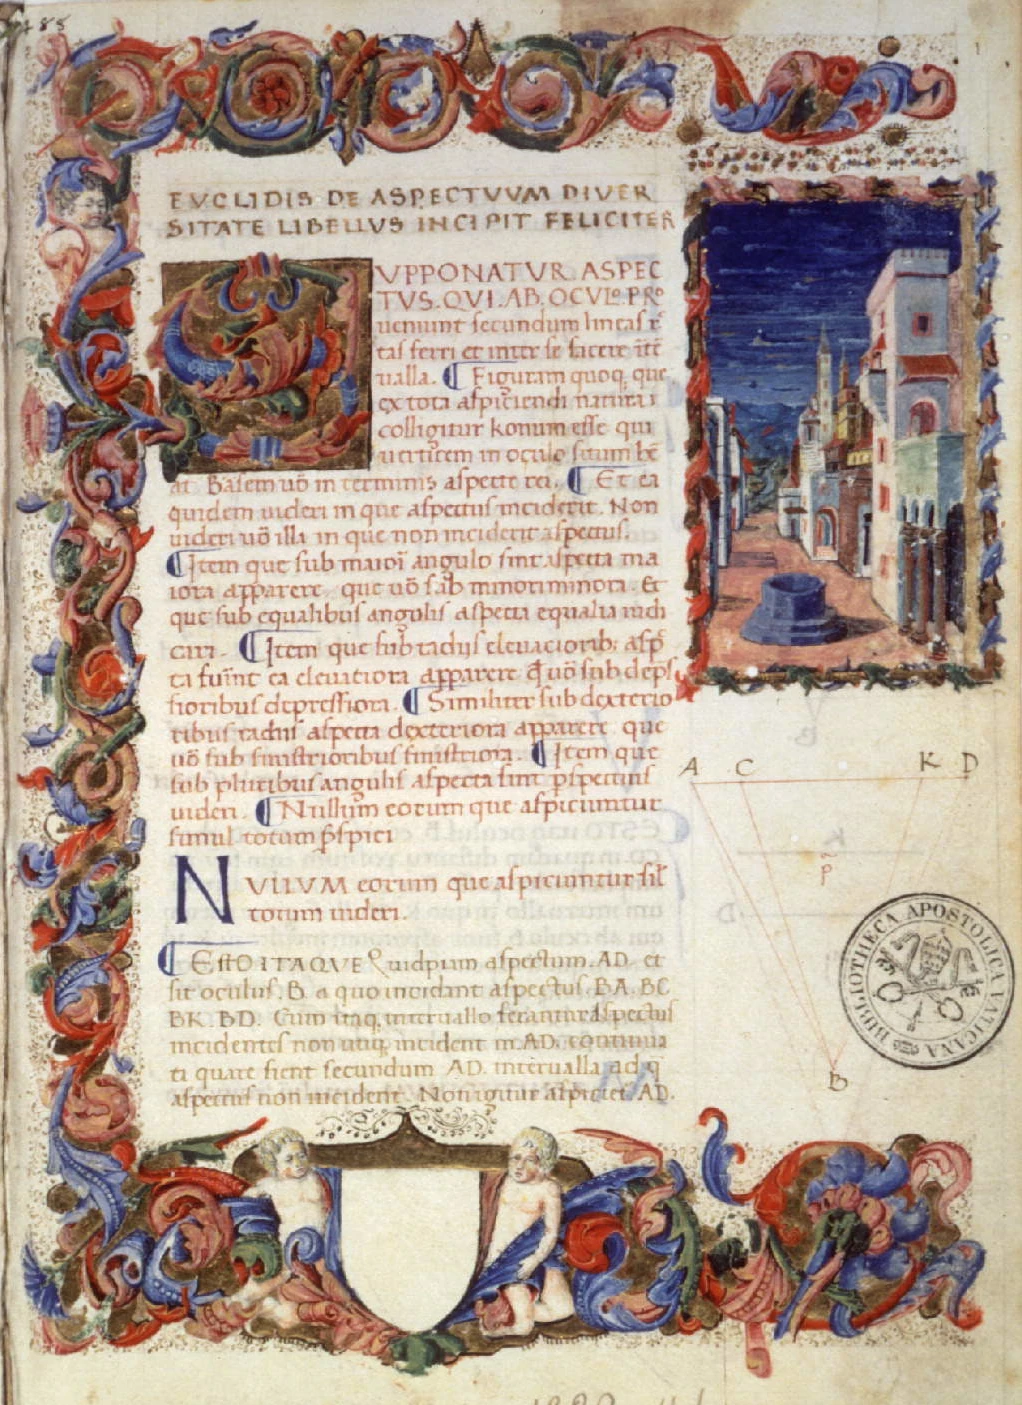 85
1
EVCLIDIS DE ASPECTVVM DIVER
SITATE LIBELLVS INCIPIT FELICITER
SUPPONATUR ASPEC
TUS. QUI. AB. OCULO. PRO
ueniunt secundum lineas r̄
tas ferri et inter se facere īte
ualla. ¶ Figuram quoq; que
ex tota aspiciendi natura
colligitur konum esse qui
uerticem in oculo situm hē
at. Basem uō in terminis aspecte rei. ¶ Et ea
quidem uideri in que aspectus inciderit. Non
uideri uō illa in que non inciderit aspectus.
¶ Item que sub maiori angulo sint aspecta ma
iora apparere. que uō sub minori minora. Et
que sub equalibus angulis aspecta equalia iudi
cari. ¶ Item que sub radijs eleuatiorib; aspec
ta fuīnt ea eleuatiora apparere q̄ uō sub depres
sioribus depressiora. ¶ Similiter sub dexterio
ribus radijs aspecta dexteriora apparere que
uō sub sinistrioribus sinistriora. ¶ Item que
sub pluribus angulis aspecta sint perspectius
uideri. ¶ Nullum eorum que aspiciuntur
simul totum perspici
NULLUM eorum que aspiciuntur sil̄
totum uideri.
¶ ESTO ITAQUE Quidpiam aspectum. AD. et
sit oculus. B. a quo incidant aspectus. BA. BC.
BK. BD. Cum itaq; interuallo ferantur aspectus
incidentes non utiq; incident in. AD. continua
ti quare fient secundum AD. interualla ad q̄
aspectus non incident. Non igitur aspiciet. AD.
A C K D
B
BIBLIOTHECA APOSTOLICA VATICANA